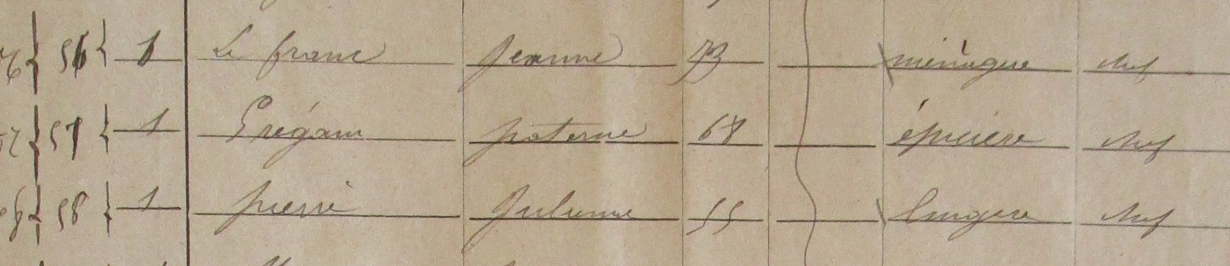 56 1 Le franc Jeanne 73 ménagère chef
57 1 Prégam paterne 68 épicière chef
58 1 pierre Julienne 55 lingère chef